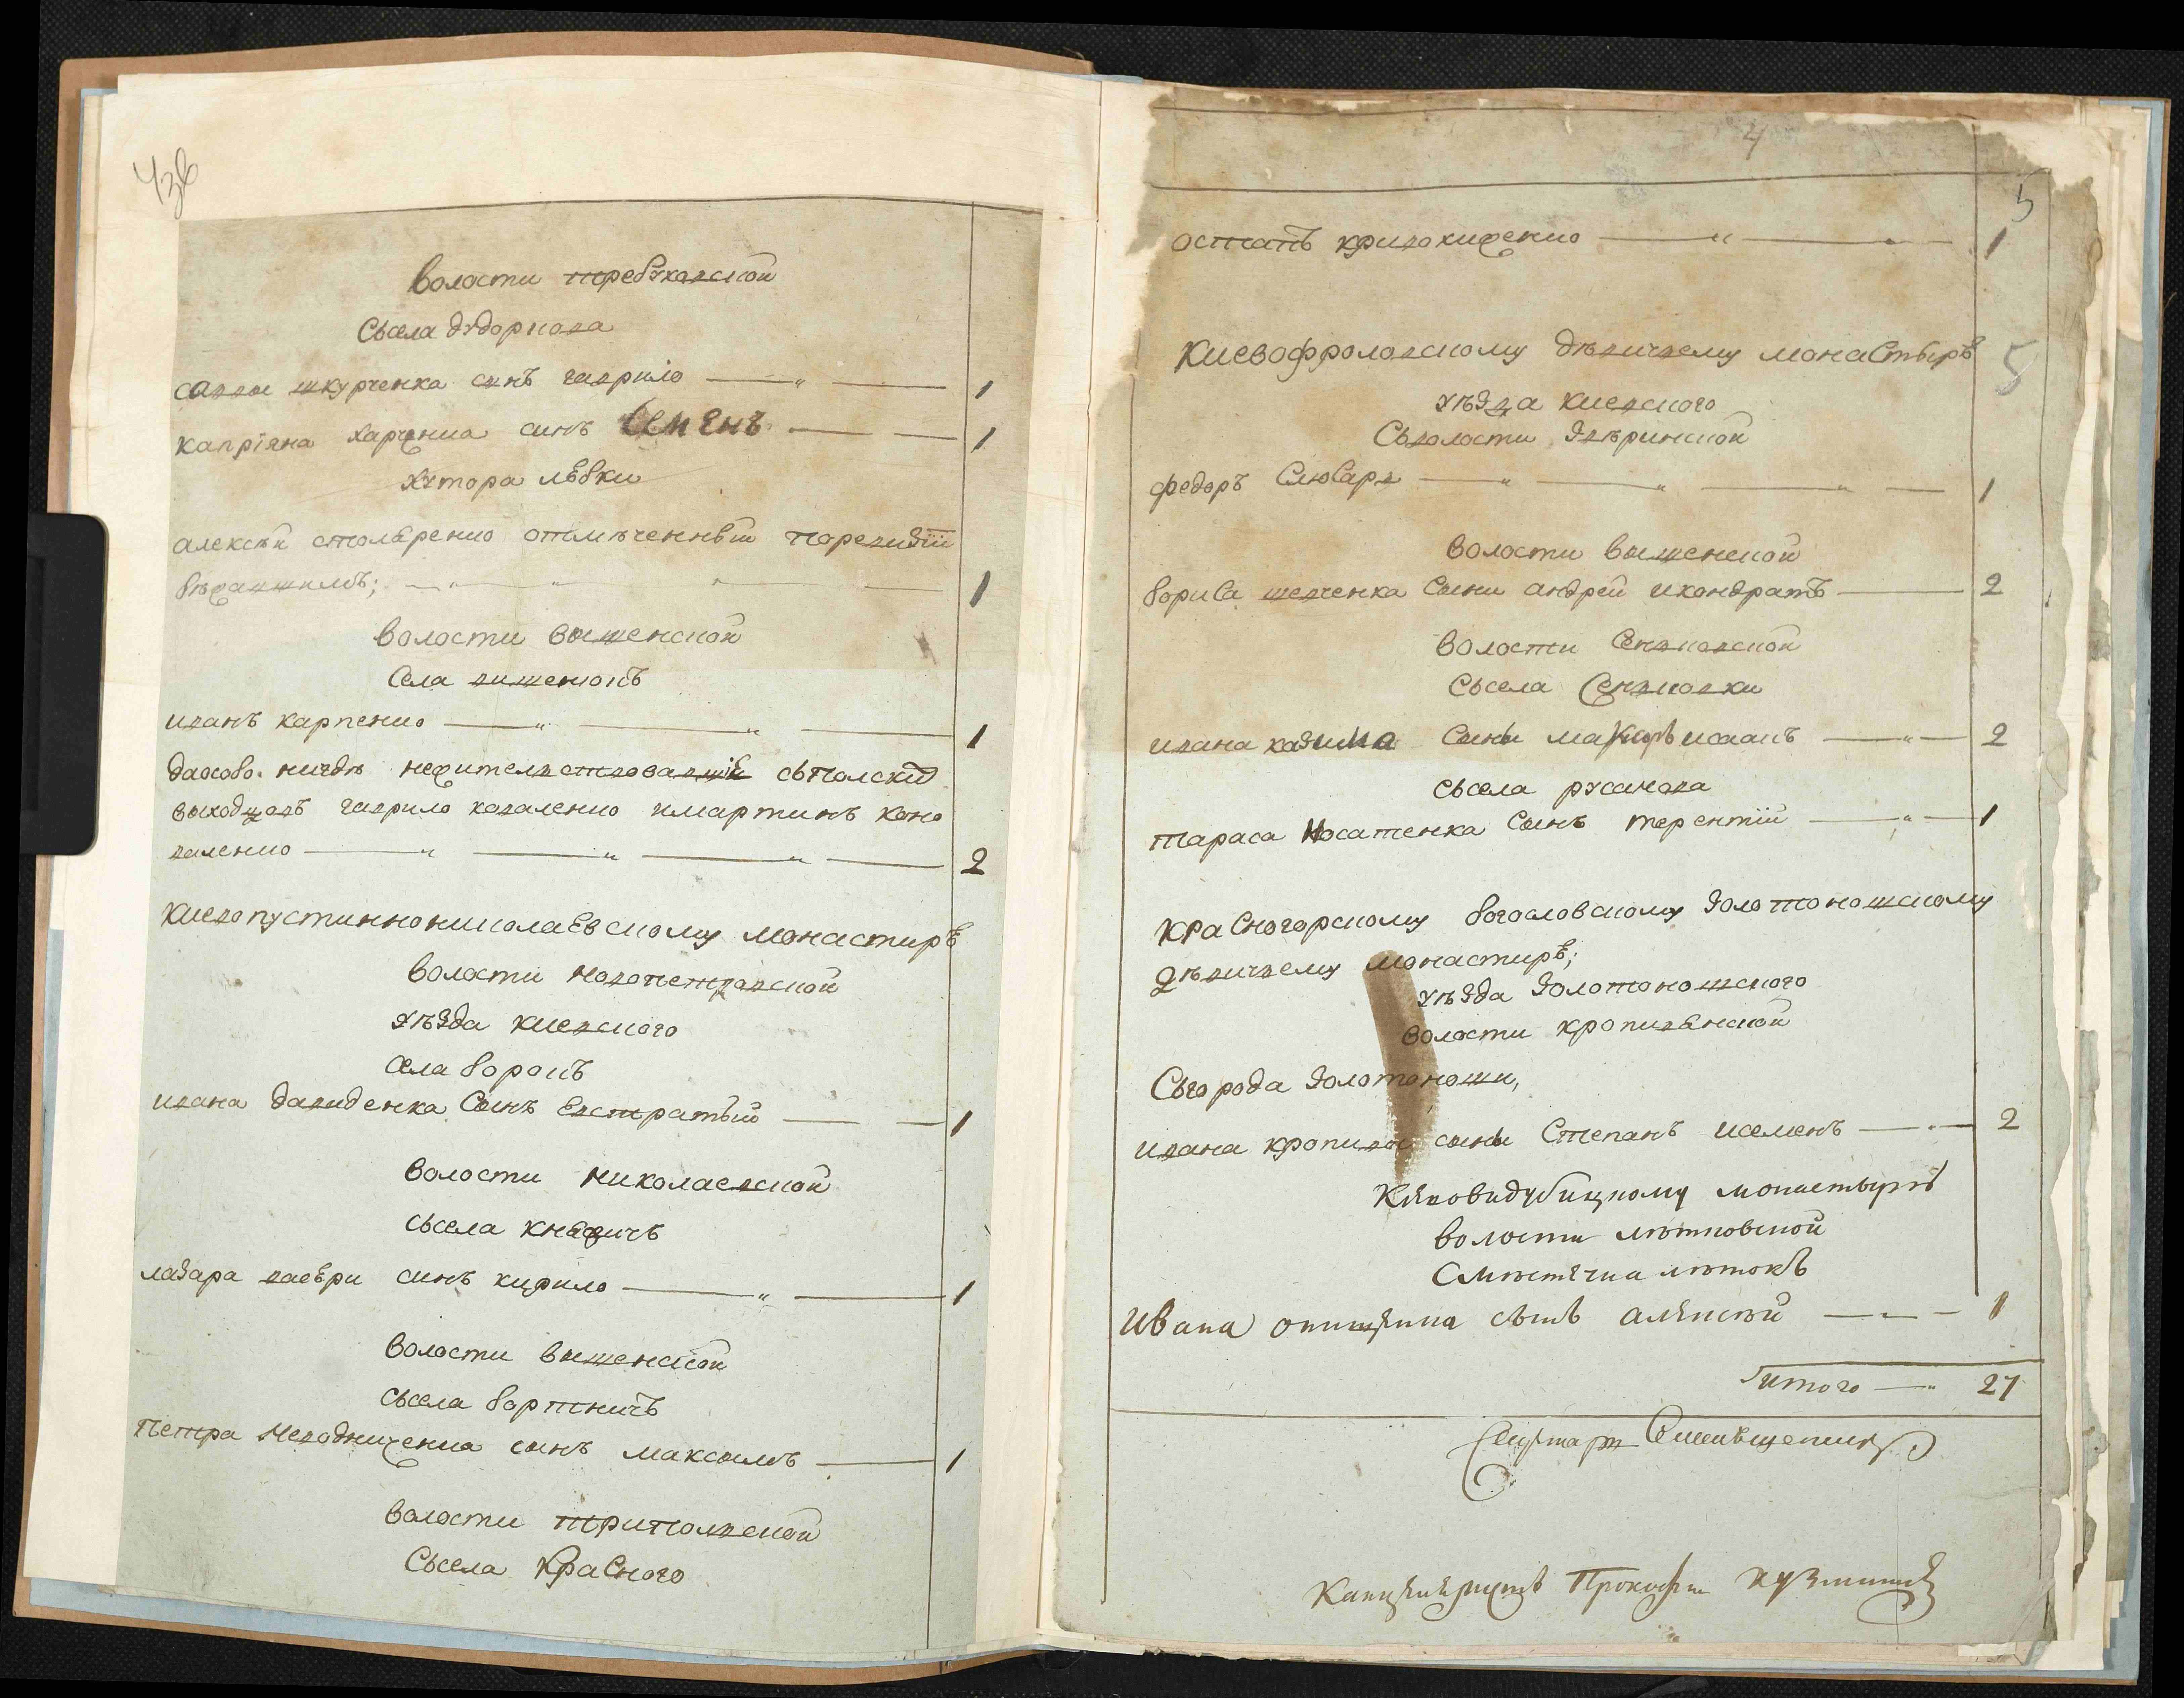 43в
волости требуховской
сьсела дударкова
саввы шкурченка синъ гаврило 1
капріяна харченка синъ семенъ 1
хутора лебки
алексѣй столяренко отмѣченный поревизіи
бѣжавшимъ; 1
волости вышенской
села вишенокъ
иванъ карпенко 1
даособо нигдѣ нежителствовавшіе сьполскихъ
выходцовъ гаврило коваленко имартинъ коно
валенко 2
киевопустиннониколаевскому монастирѣ
волости новопетровской
уѣзда киевского
села боркъ
ивана давиденка сынъ евстратый 1
волости николаевской
сьсела княжичъ
лазара ваеври синъ кирило 1
волости вишенской
сьсела бортничъ
петра неводниченка сынъ максимъ 1
волости трипольской
сьсела красного
4
5
остапъ кривохиженко 1
киевофроловскому дѣвичему монастырѣ
5
уѣзда киевского
сьволости звѣринской
федоръ слюсаръ 1
волости вышенской
бориса шевченка сыни андрей икондратъ 2
волости семполовской
сьсела семполовки
ивана казика сыны макаръ иісакъ 2
сьсела русанова
тараса носатенка сынъ терентій 1
красногорскому богословскому золотоношскому
дѣвичему монастирѣ;
уѣзда золотоношского
волости кропивенской
сьгорода золотоноши,
ивана кропивы сыны степанъ исеменъ 2
киевовидубицкому монастырѣ
волости лѣтковской
сместечка лѣтокъ
ивана онищенка сынъ алексѣй 1
итого 27
Канцеляристъ Прокофій